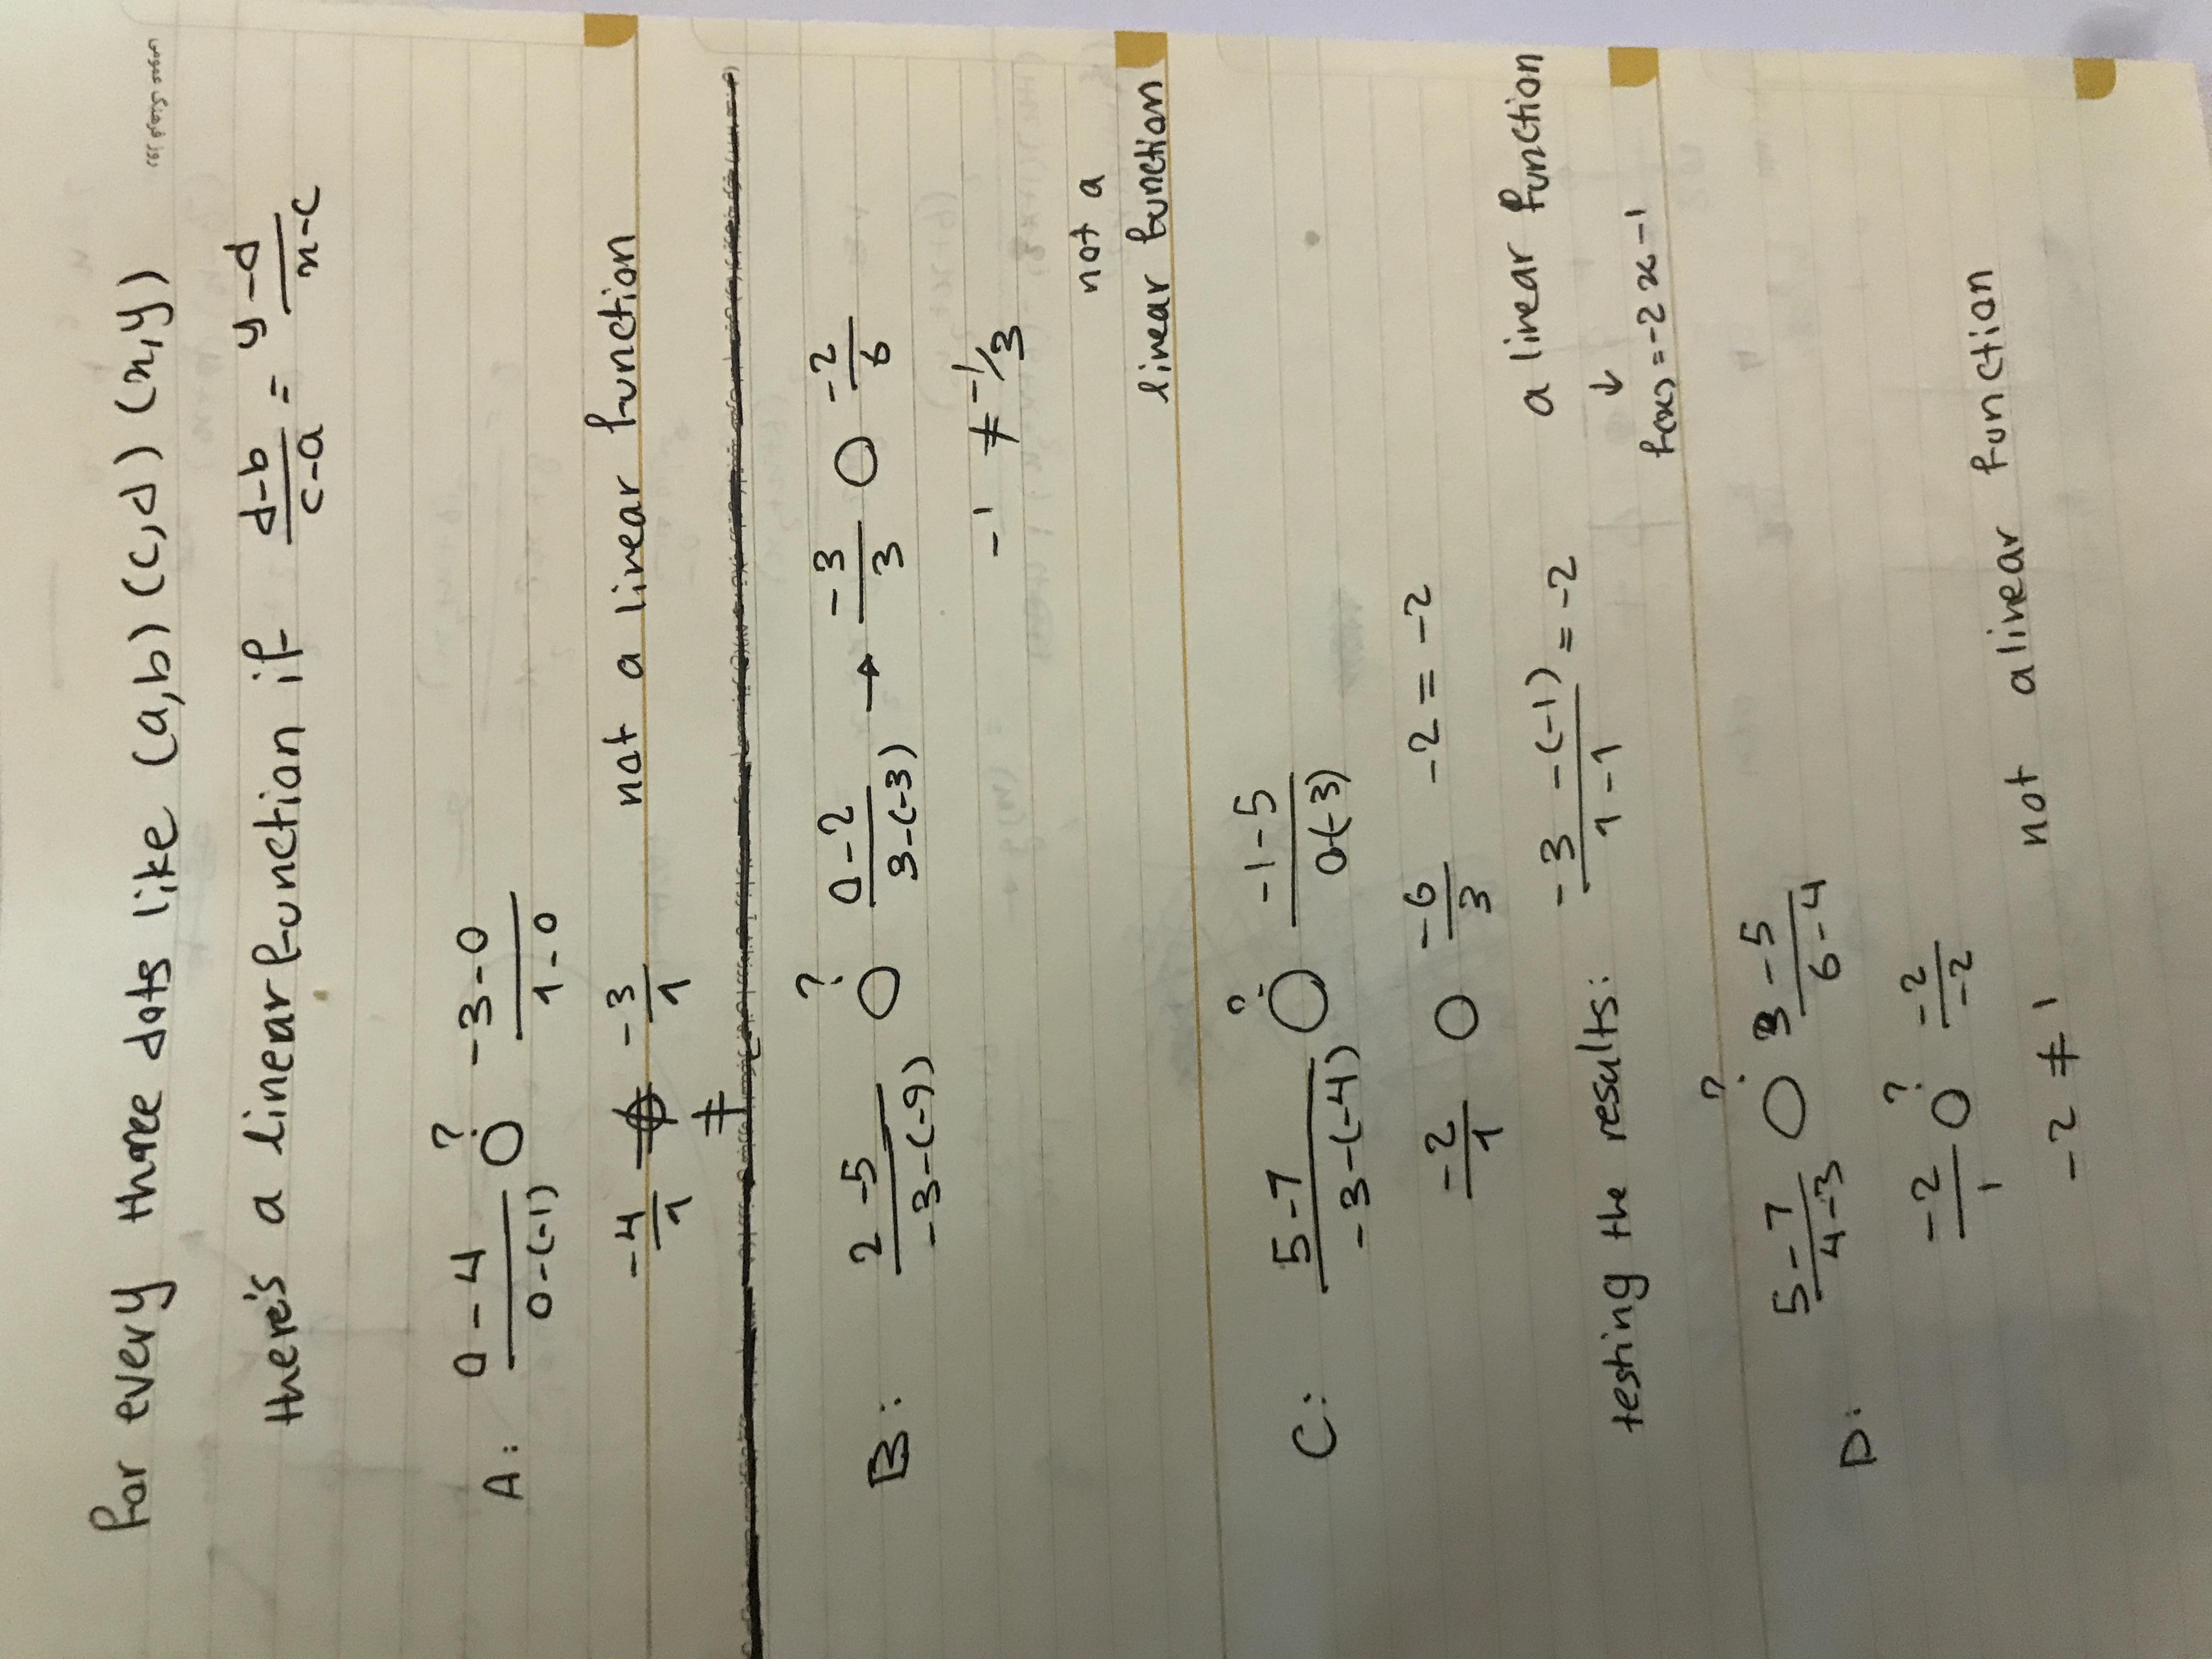 For every three dots like (a,b) (c,d) (x,y)
there's a linear function if d-b/c-a = y-d/x-c
A: 0-4/0-(-1) ? ○ -3-0/1-0
-4/1 ≠ -3/1 not a linear function
B: 2-5/-3-(-9) ? ○ 0-2/3-(-3) → -3/3 ○ -2/6
-1 ≠ -1/3
not a
linear function
C: 5-7/-3-(-4) ? ○ -1-5/0-(-3)
-2/1 ○ -6/3 -2 = -2
a linear function
testing the results: -3-(-1)/1-1 = -2
↓
f(x)=-2x-1
D: 5-7/4-3 ? ○ 3-5/6-4
-2/1 ? ○ -2/-2
-2 ≠ 1 not a linear function